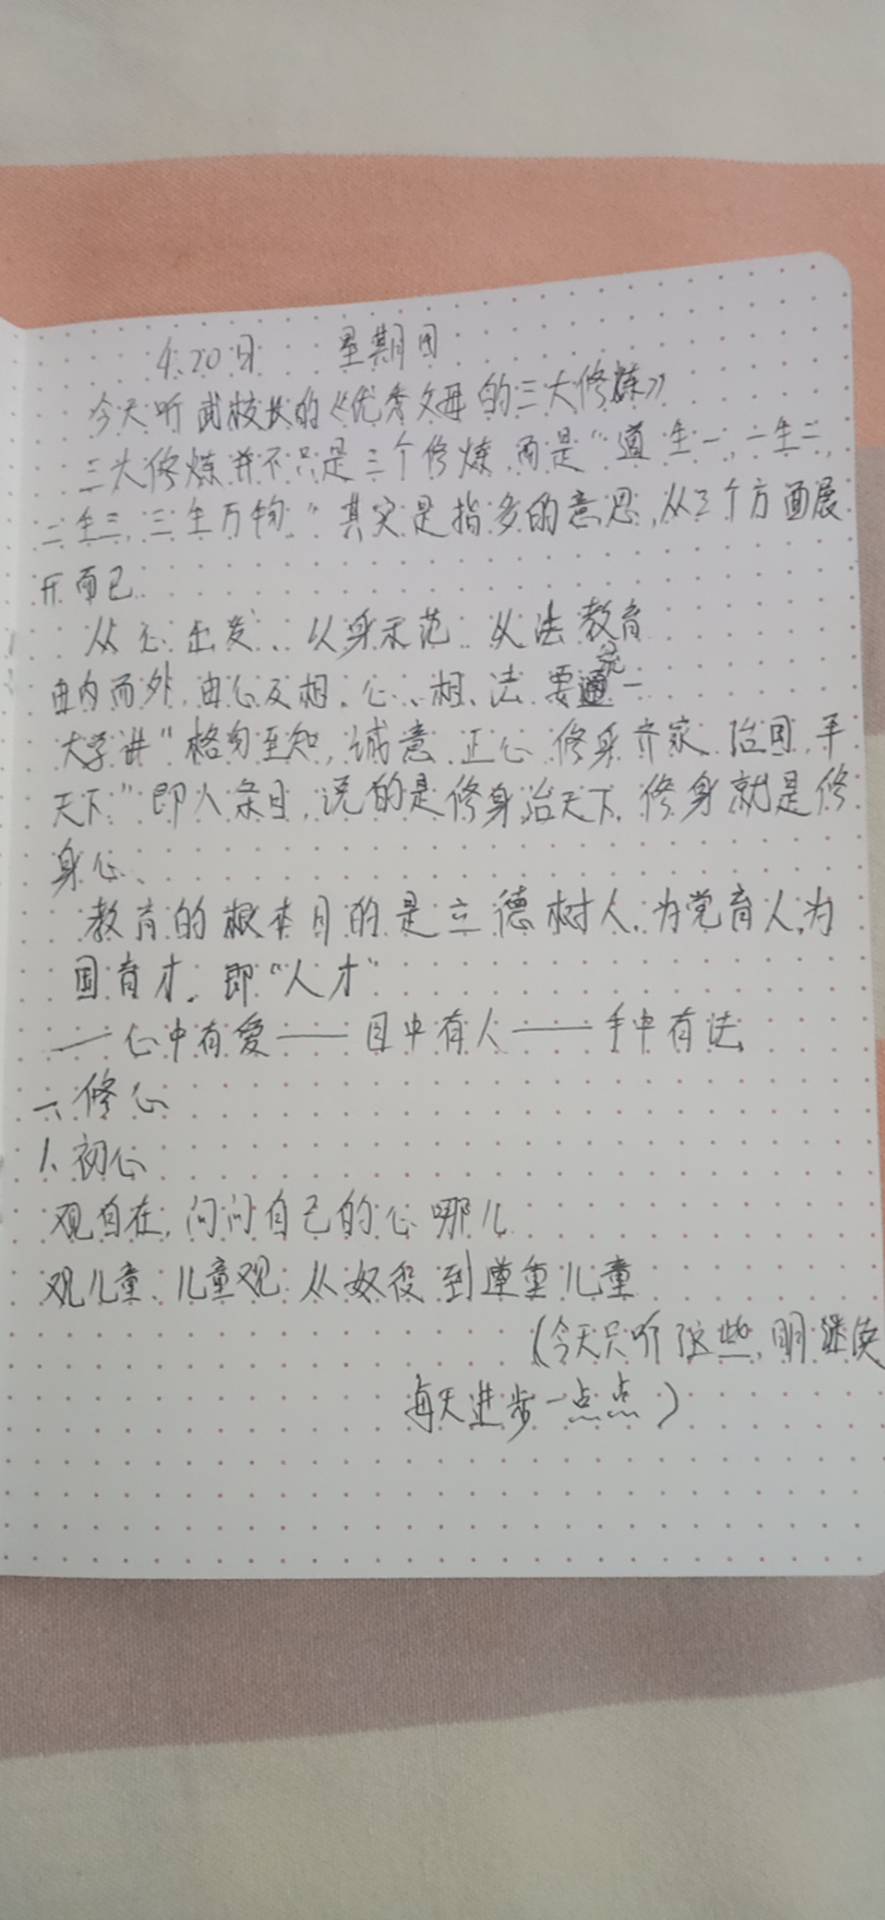 4.20日 星期四
今天听武校长的《优秀父母的三大修炼》
三大修炼并不只是三个修炼,而是“道生一,一生二,
二生三,三生万物。”其实是指多的意思,从三个方面展
开而已
从心出发、以身示范、从法教育
由内而外,由心及相、心、相、法要统一
大学讲“格勿至知,诚意、正心、修身齐家、治国,平
天下”即八条目,说的是修身治天下,修身就是修
身心、
教育的根本目的是立德树人,为党育人,为
国育才,即“人才”
——心中有爱——目中有人——手中有法
一、修心
1、初心
观自在,问问自己的心哪儿
观儿童、儿童观 从奴役到尊重儿童
(今天只听这些,明继续
每天进步一点点)